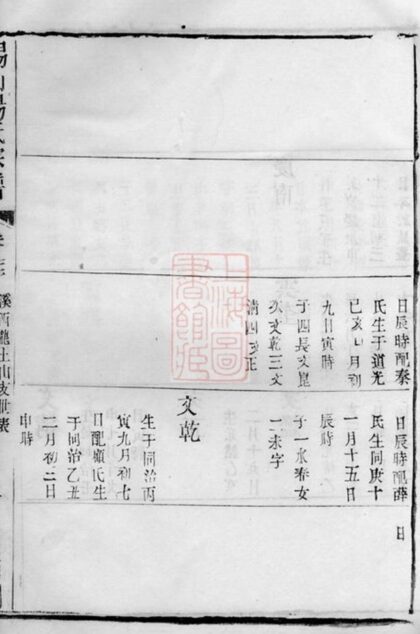 日辰時配秦
氏生于道光
己亥四月初
九日寅時
子四長文崑
次文乾三文
清四文正
日
日辰時配薛
氏生同庚十
一月十五日
辰時
子一水春女
一未字
文乾
生于同治丙
寅九月初七
日配顧氏生
于同治乙丑
二月初二日
申時
氏宗譜
溪西龍土山支世表
上海圖
書館藏